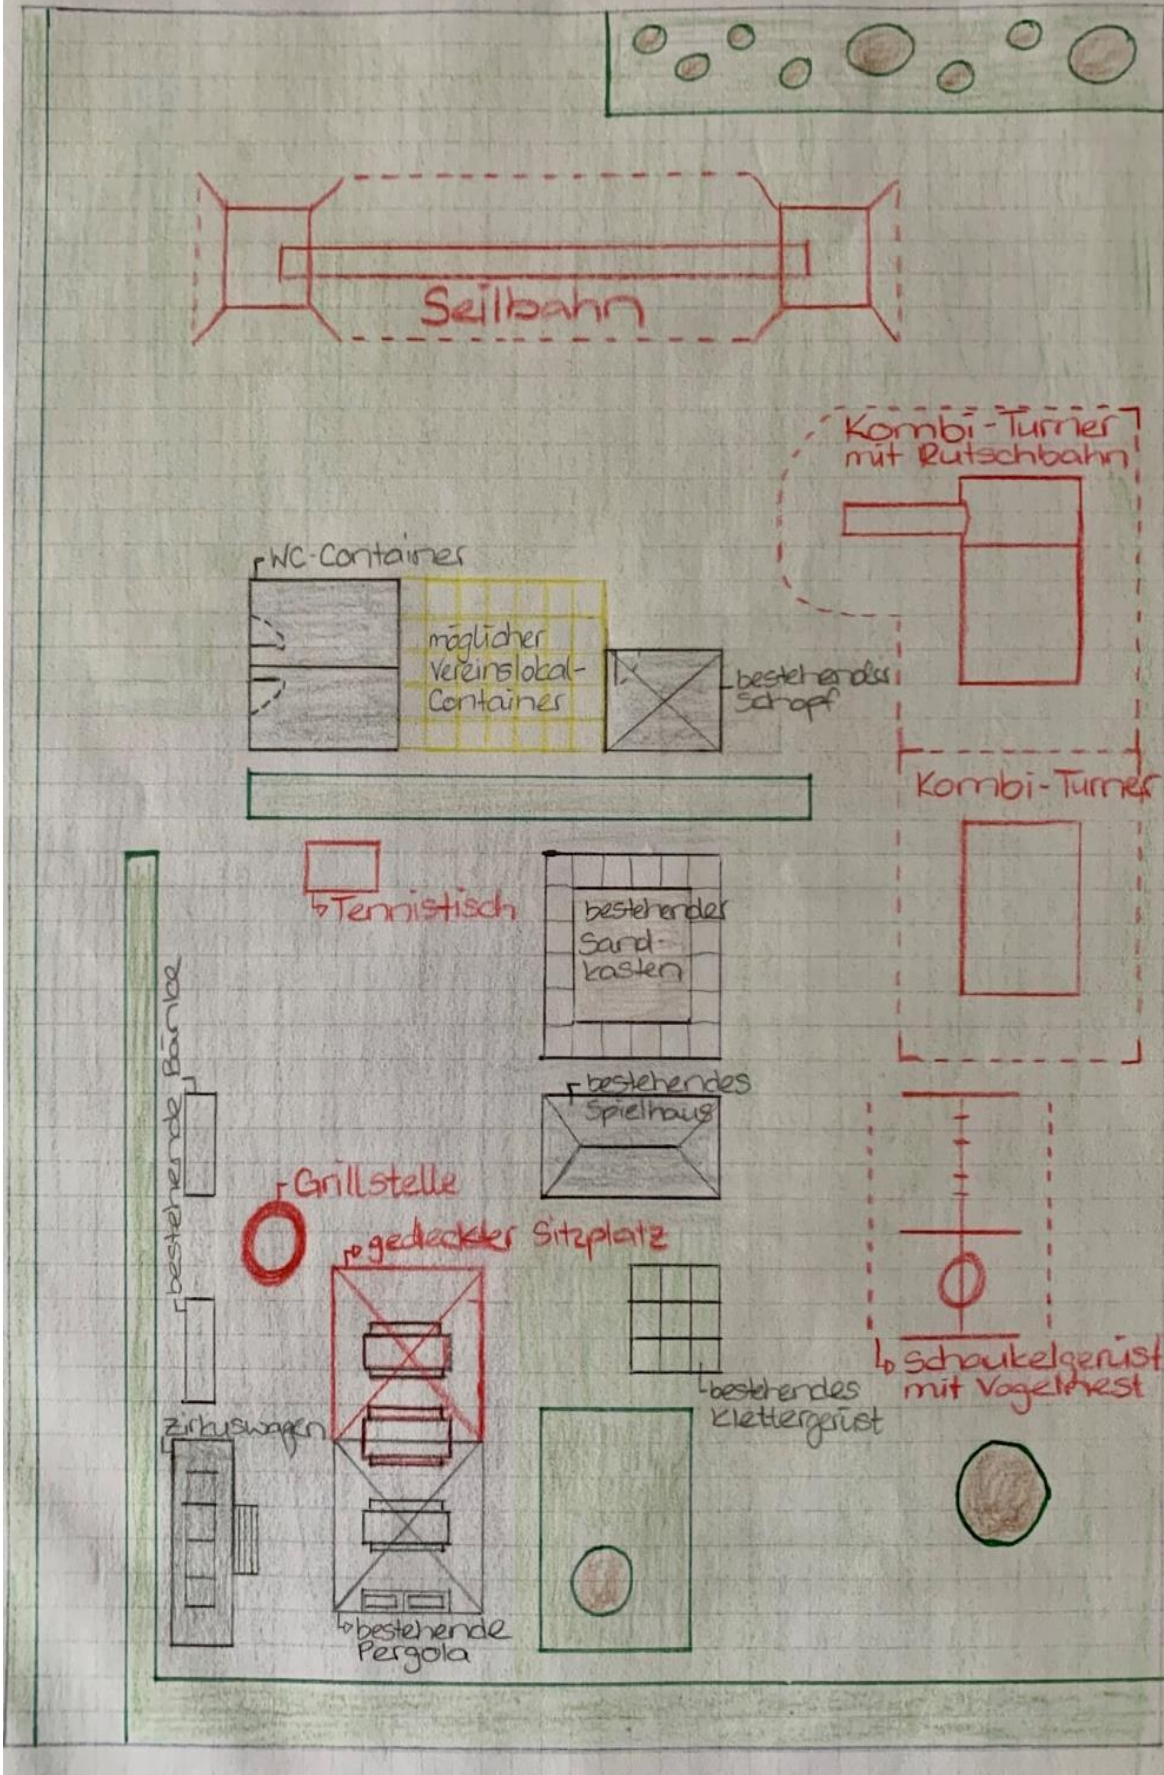 Seilbahn
Kombi-Turner
mit Rutschbahn
WC-Container
möglicher
Vereinslokal-
Container
bestehender
Schopf
Kombi-Turner
Tennistisch
bestehender
Sand-
kasten
bestehende Bänke
bestehendes
Spielhaus
Grillstelle
gedeckter Sitzplatz
Schaukelgerüst
mit Vogelnest
bestehendes
Klettergerüst
Zirkuswagen
bestehende
Pergola